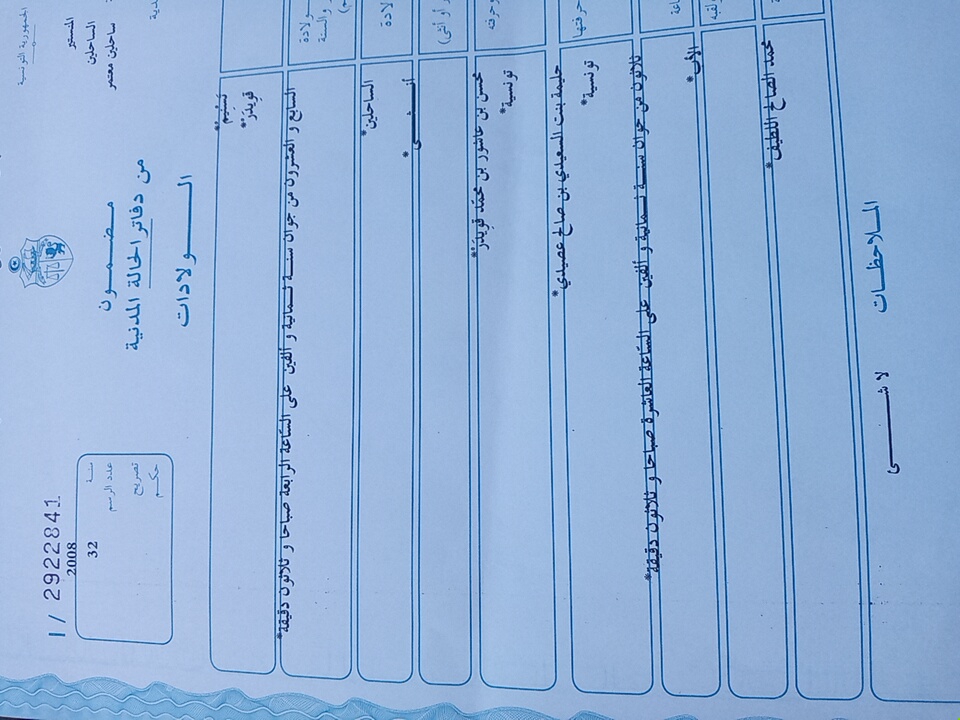 الجمهورية التونسية
المنستير
الساحلين
ساحلين معتمر
مضمـــــون
من دفاتر الحالة المدنية
الـــــولادات
I / 2922841
2008
سنة
32
عدد الرسم
تصريح
حكم
تسنيم*
قويدر*
ولادة
و السنة
السابع و العشرون من جوان سنـــة ثـمانية و ألفين على الساعة الرابعة صباحا و ثلاثون دقيقة*
لادة
الساحلين*
أو أنثى)
أنـــــثـــــى*
و حرفته
محسن بن عاشور بن محمد قويدر*
تونسية*
حرفتها
حليمة بنت السعيدي بن صالح عصيدي*
تونسية*
ثلاثون من جوان سنـــة ثـمانية و ألفين على الساعة العاشرة صباحا و ثلاثون دقيقة*
الأب*
محمد الصالح اللطيف*
الملاحظـــات
لا شـــــــى